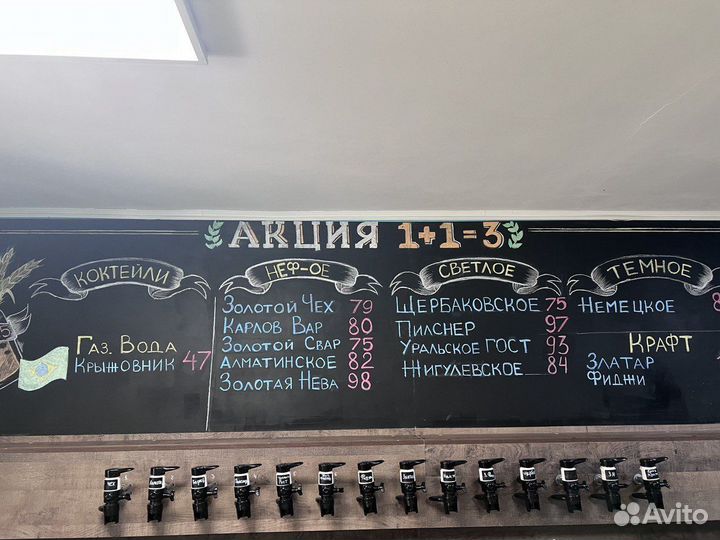 АКЦИЯ 1+1=3
КОКТЕЙЛИ
ГАЗ. ВОДА
КРЫЖОВНИК 47
НЕФ-ОЕ
ЗОЛОТОЙ ЧЕХ 79
КАРЛОВ ВАР 80
ЗОЛОТОЙ СВАР 75
АЛМАТИНСКОЕ 82
ЗОЛОТАЯ НЕВА 98
СВЕТЛОЕ
ЩЕРБАКОВСКОЕ 75
ПИЛСНЕР 97
УРАЛЬСКОЕ ГОСТ 93
ЖИГУЛЕВСКОЕ 84
ТЕМНОЕ
НЕМЕЦКОЕ
КРАФТ
ЗЛАТАР
ФИДЖИ
ЧЕХ
Avito